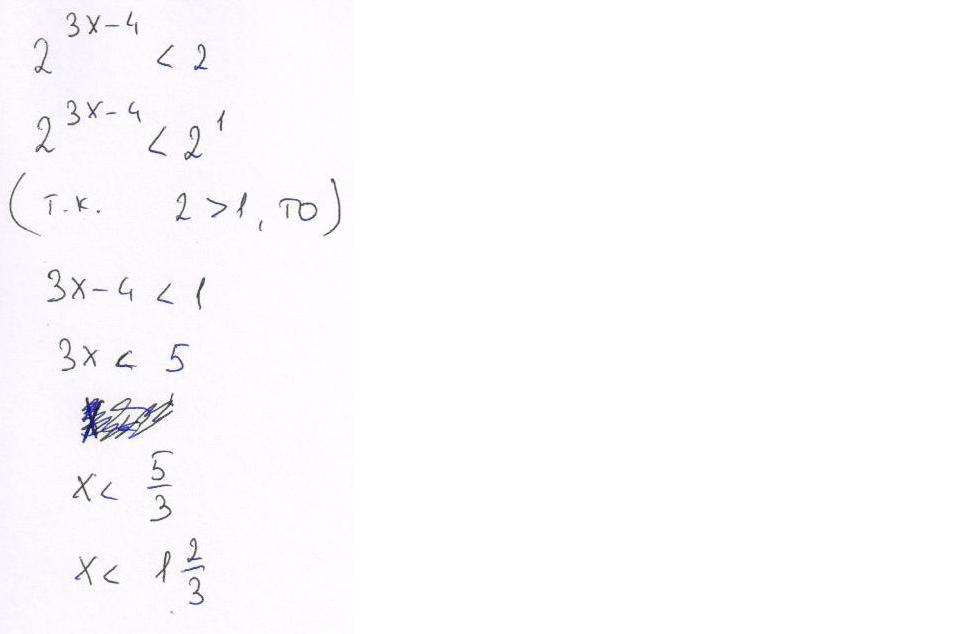 2^{3x-4} < 2
2^{3x-4} < 2^1
(т.к. 2 > 1, то)
3x - 4 < 1
3x < 5
x < 5/3
x < 1 2/3